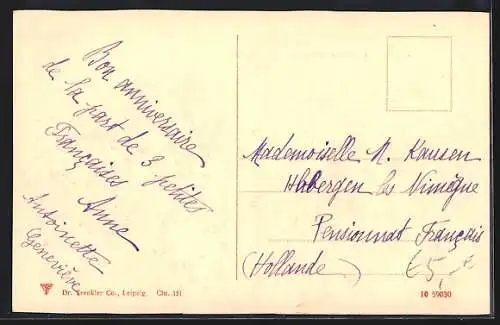 Bon anniversaire
de la part de 3 petites
Françaises Anne
Antoinette
Geneviève
Mademoiselle M. Kausen
Hubergen les Nimègue
Pensionnat Français
(Hollande)
€5,-
Dr. Trenkler Co., Leipzig. Chr. 151
10 59030